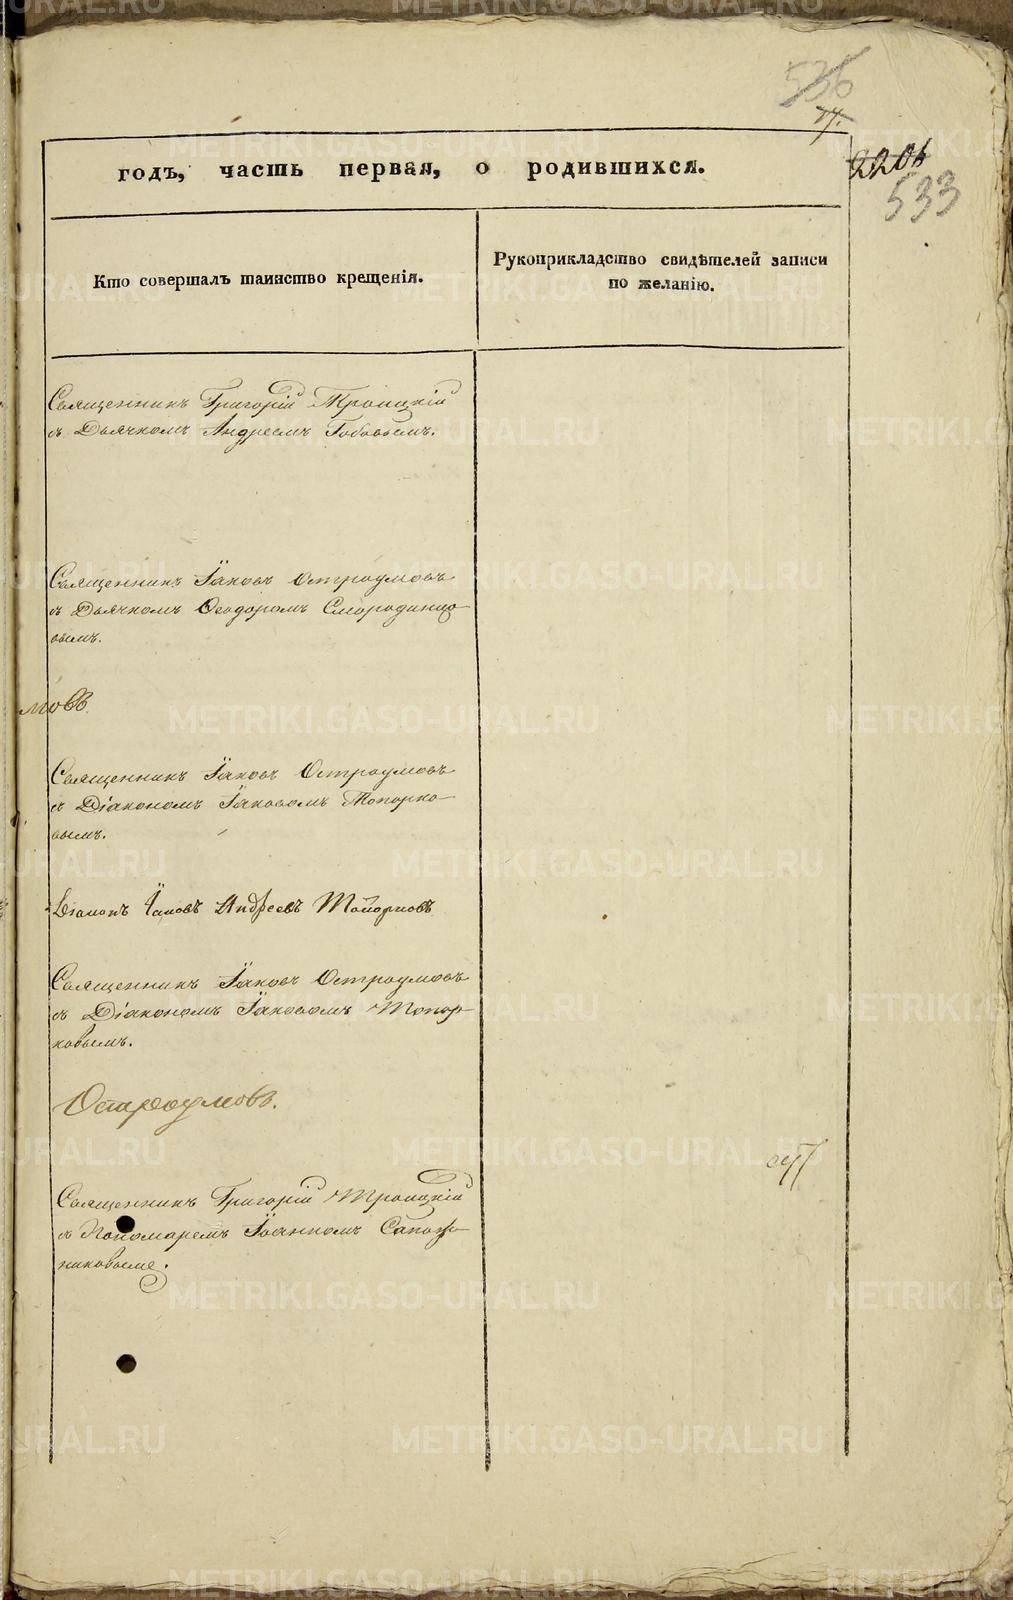 536
2206
533
годъ, часть первая, о родившихся.
Кто совершалъ таинство крещенія.
Рукоприкладство свидѣтелей записи
по желанію.
Священникъ Григорій Троицкій
съ Дьячкомъ Андреемъ
Священникъ Іаковъ Остроумовъ
съ Дьячкомъ Ѳеодоромъ Смородинцо-
вымъ.
мовъ
Священникъ Іаковъ Остроумовъ
съ Діакономъ Іаковомъ Топорко-
вымъ.
Діаконъ Іаковъ Андреевъ Топорковъ
Священникъ Іаковъ Остроумовъ
съ Діакономъ Іаковомъ Топор-
ковымъ.
Остроумовъ.
Священникъ Григорій Троицкій
съ Пономаремъ Іоанномъ Сапож-
никовыме.
METRIKI.GASO-URAL.RU